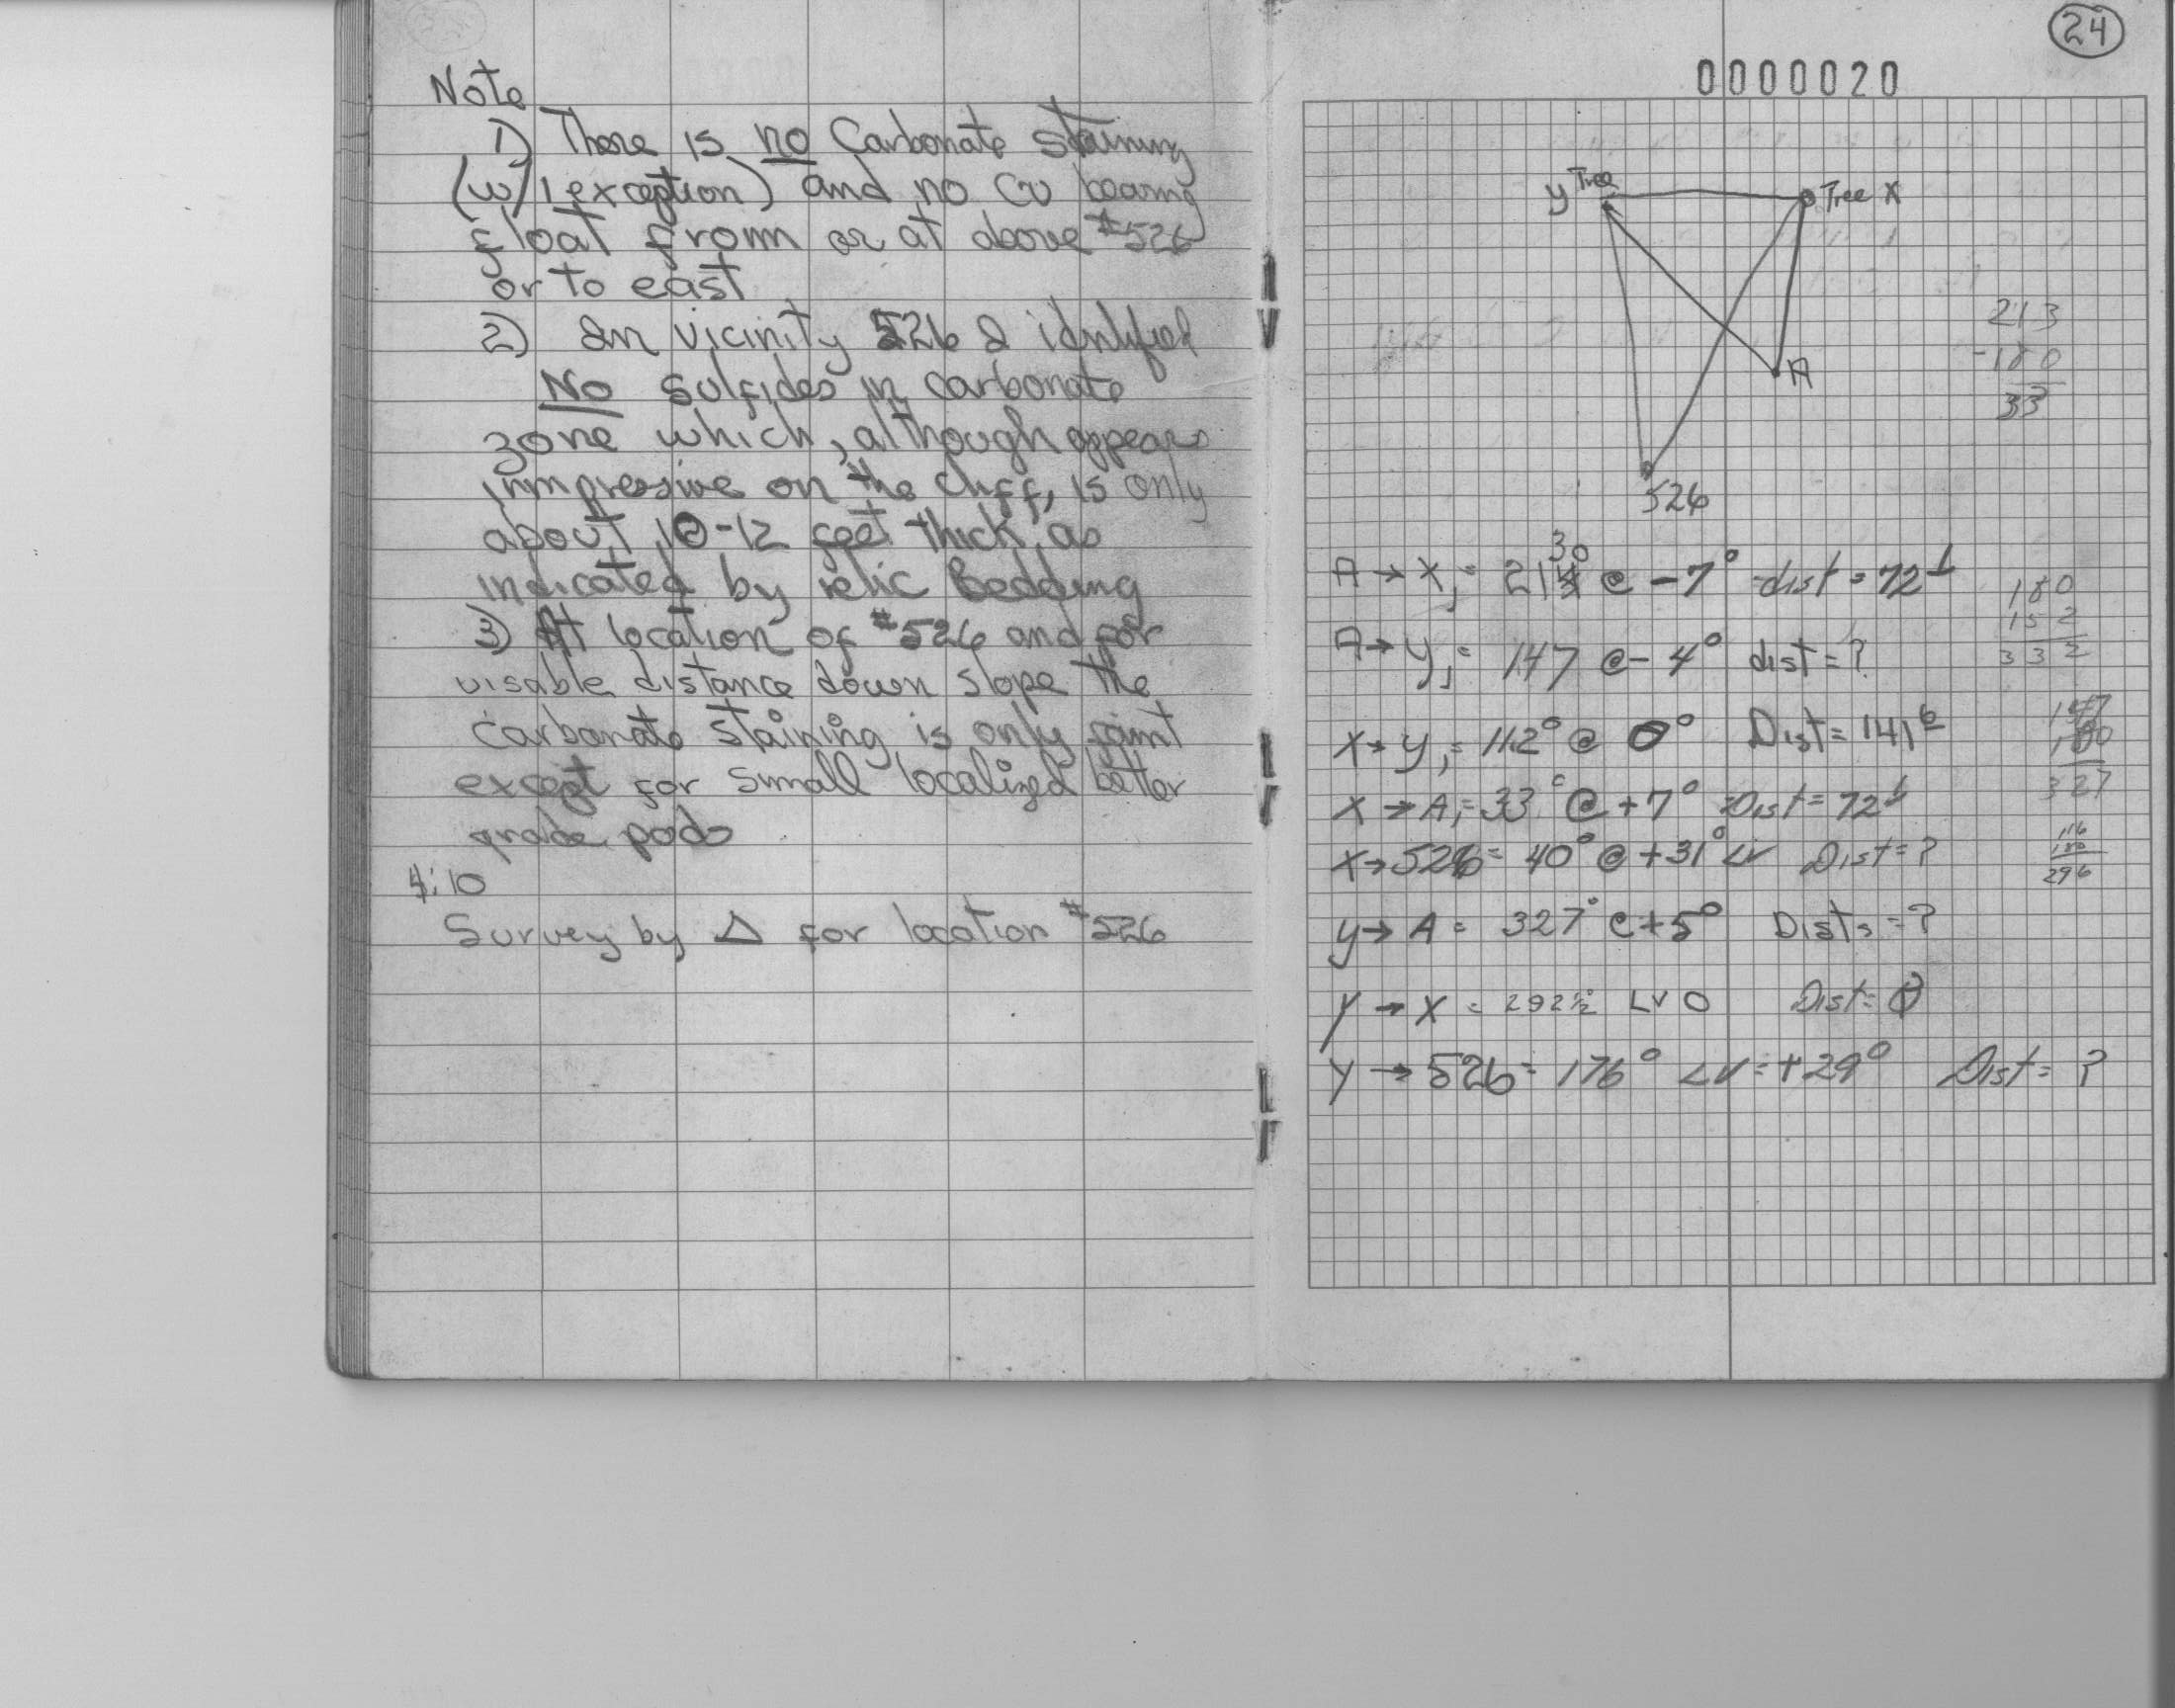 Note
1) There is no Carbonate Staining
(w/1 exception) and no Cu bearing
float from or at above #526
or to east
2) In vicinity 526 I identified
No sulfides in carbonate
zone which, although appears
impressive on the cliff, is only
about 10-12 feet thick as
indicated by relic Bedding
3) At location of #526 and for
visable distance down slope the
Carbonate staining is only faint
except for small localized better
grade pods
4:10
Survey by Δ for location #526
24
0000020
y Tree
Tree X
A
526
213
-180
33
30
A → X, = 21 @ -7° dist = 72
180
152
332
A → y, = 147 @ - 4° dist = ?
X → y, = 112° @ 0° Dist = 141
147
180
327
X → A, = 33° @ +7° Dist = 72
X → 526 = 40° @ +31° LV Dist = ?
116
180
296
y → A = 327° @ +5° Dist = ?
Y → X = 292½ LV 0 Dist =
Y → 526 = 176° LV = +29° Dist = ?